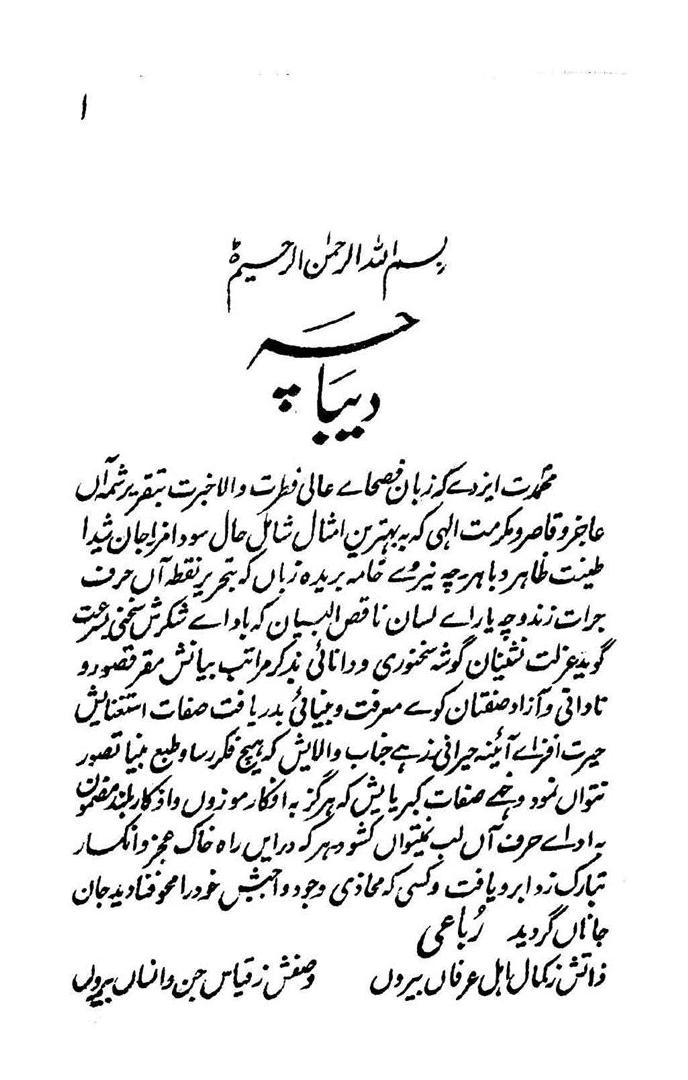 ۱
بسم اللہ الرحمٰن الرحیم
دیباچہ
محمدت ایزدے کہ زبان فصحاے عالی فطرت والا خبرت بتقریر شمہ آں
عاجز و قاصر و مکرمت الہی کہ بہ بہترین امثال شامل حال سودا مزاجان شیدا
طینت ظاہر و باہر چہ نیروے خامہ بریدہ زباں کہ بتحریر نقطہ آں حرف
جرات زند و چہ یاراے لسان ناقص البیان کہ باداے شکرش سخنی بسرعت
گوید عزلت نشینان گوشہ سخنوری و دانائی بذکر مراتب بیانش مقر قصور و
نادانی و آزاد صفتان کوے معرفت و بینائی بدریافت صفات استغنایش
حیرت افزاے آئینہ حیرانی زہے جناب والایش کہ ہیچ فکر رسا و طبع بینا تصور
نتواں نمود و خہے صفات کبریایش کہ ہرگز بہ افکار موزوں و اذکار بلند مضمون
بہ اداے حرف آں لب نیتواں کشود ہر کہ در ایں راہ خاک عجز و انکسار
تبارک زد ابرو یافت و کسی کہ محاذی وجود واجبش خود را محو فنا دید جان
جاناں گردید رُباعی
ذاتش ز کمال اہل عرفاں بیروں وصفش ز قیاس جن و انساں بیروں